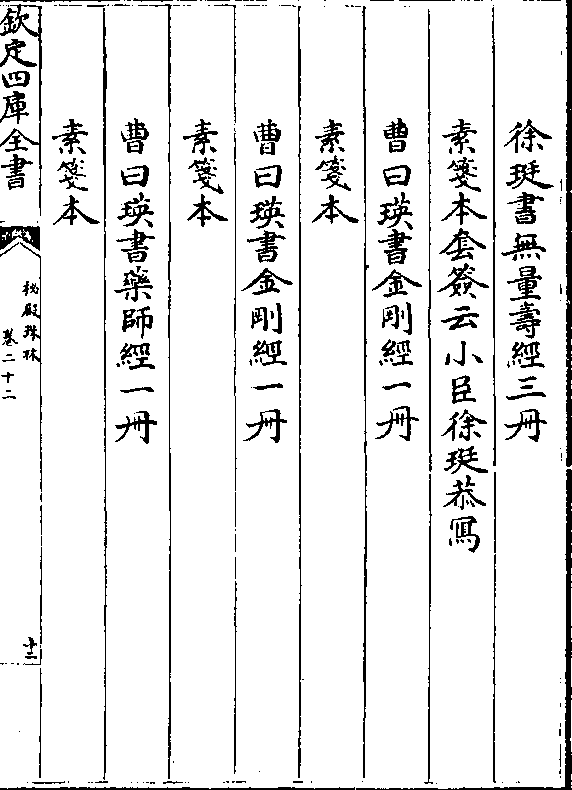 徐珽書無量壽經三冊
素箋本套簽云小臣徐珽恭寫
曹曰瑛書金剛經一冊
素箋本
曹曰瑛書金剛經一冊
素箋本
曹曰瑛書藥師經一冊
素箋本
欽定四庫全書
秘殿珠林
卷二十二
十二